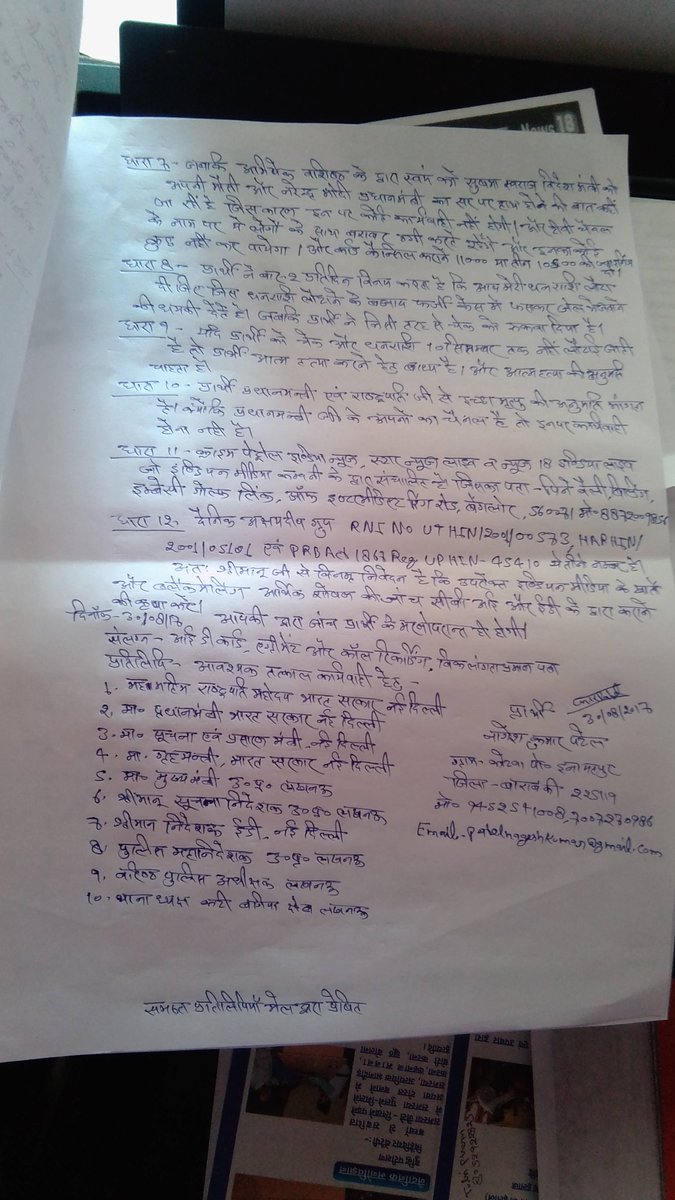 धारा 7- जबकि अभिषेक वशिष्ठ के द्वारा स्वयं को सुषमा स्वराज विदेश मंत्री को
अपनी मौसी और नरेन्द्र मोदी प्रधानमंत्री का सर पर हाथ होने की बात कही
जा रही है जिस कारण इन पर कोई कार्यवाही नहीं होगी। और इसी चैनल
के नाम पर ये लोगों के साथ बराबर ठगी करते रहेंगे और इनका कोई
कुछ नहीं कर पायेगा। और कार्ड कैन्सिल कराने 11000 मा
धारा 8- प्रार्थी ने बार-2 प्रतिदिन विनय करता है कि आप मेरी धनराशि लौटा
दीजिए जिस धनराशि लौटाने के बजाय फर्जी केस में फंसाकर जेल भेजवाने
की धमकी देते हैं। जबकि प्रार्थी ने किसी तरह से चेक को रुकवा दिया है।
धारा 9- यदि प्रार्थी को चेक और धनराशि 10 सितम्बर तक नहीं लौटाई जाती
है तो प्रार्थी आत्म हत्या करने हेतु बाध्य है। और आत्महत्या की अनुमति
चाहता है।
धारा 10- प्रार्थी प्रधानमन्त्री एवं राष्ट्रपति जी से इच्छा मृत्यु की अनुमति मांगता
है। क्योंकि प्रधानमन्त्री जी के अपनों का चैनल है तो इनपर कार्यवाही
होना नहीं है।
धारा 11- क्राइम पेट्रोल इंडिया न्यूज, स्टार न्यूज लाइव व न्यूज 18 इण्डिया लाइव
जो इण्डियन मीडिया कम्पनी के द्वारा संचालित है जिसका पता- बिल्डिंग,
इम्बेसी गोल्फ लिंक, ऑफ इण्टरमीडिएट रिंग रोड, बैंगलोर, 560071 मो०
धारा 12. दैनिक अक्षयदीप ग्रुप RNI No UTHIN/2001/00573, HARHIN/
2001/05101 एवं PRB Act 1867 Reg UPHIN-45410 ये तीनों नम्बर है।
अतः श्रीमान् जी से विनम्र निवेदन है कि उपरोक्त इण्डियन मीडिया के खाते
और ब्लैकमेलिंग आर्थिक शोषण की जांच सीबीआई और ईडी के द्वारा कराने
की कृपा करें।
दिनांक- 30/08/17 आपकी द्वारा जांच प्रार्थी के मरणोपरान्त ही होगी।
संलग्न- आई डी कार्ड, एग्रीमेंट और कॉल रिकार्डिंग, विकलांगता प्रमाण पत्र
प्रतिलिपि- आवश्यक तत्काल कार्यवाही हेतु -
1. महामहिम राष्ट्रपति महोदय भारत सरकार नई दिल्ली
2. मा० प्रधानमंत्री भारत सरकार नई दिल्ली
3. मा० सूचना एवं प्रसारण मंत्री नई दिल्ली
4. मा. गृहमन्त्री, भारत सरकार नई दिल्ली
5. मा० मुख्यमंत्री उ०प्र० लखनऊ
6. श्रीमान् सूचना निदेशक उ०प्र० लखनऊ
7. श्रीमान निदेशक ईडी. नई दिल्ली
8. पुलिस महानिदेशक उ०प्र० लखनऊ
9. वरिष्ठ पुलिस अधीक्षक लखनऊ
10. थानाध्यक्ष लखनऊ
प्रार्थी
30/08/2017
नागेश कुमार पटेल
ग्राम- पो० इनायतपुर
जिला- बाराबंकी 225119
मो० 9452541008, 7007270986
Email- patelnageshkumar@gmail.com
समस्त प्रतिलिपियाँ मेल द्वारा प्रेषित
News 18